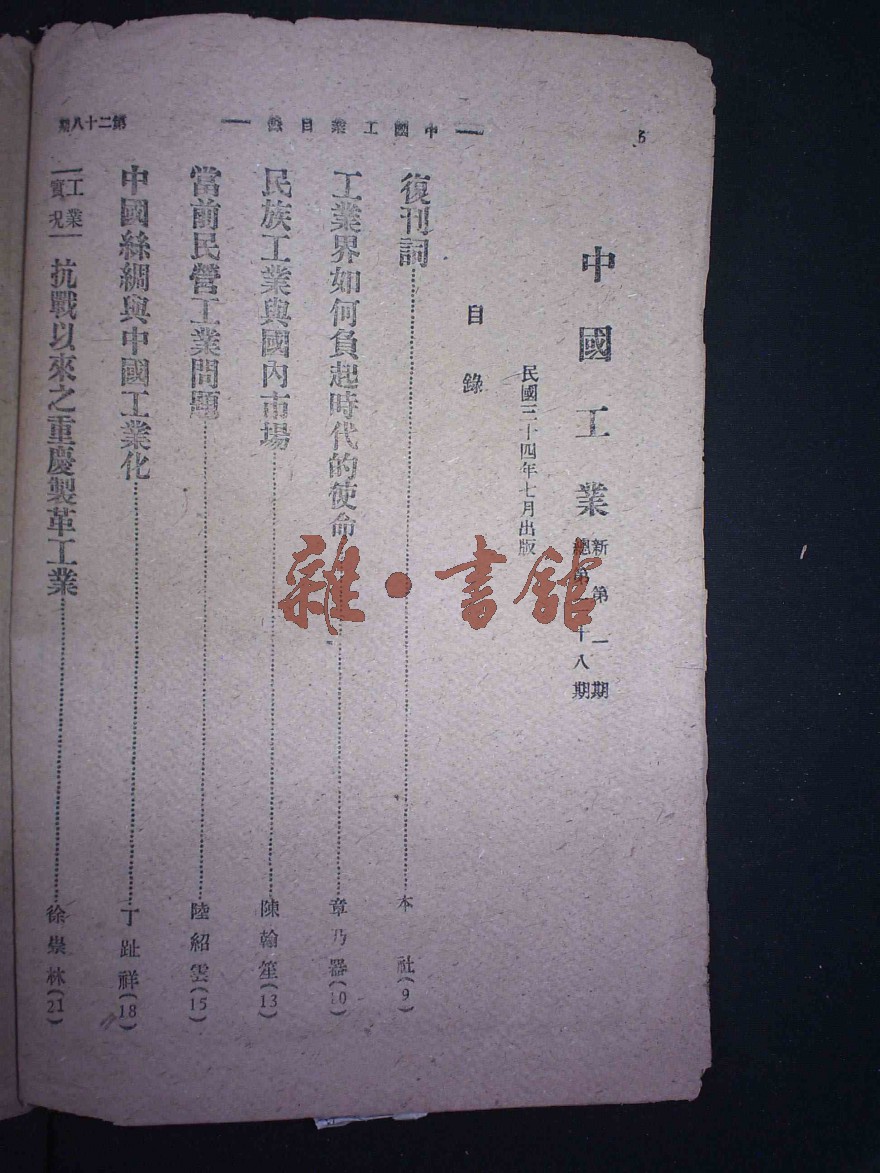 第二十八期
中國工業目錄
中國工業
新第一期
總第二十八期
民國三十四年七月出版
目錄
復刊詞 本社(9)
工業界如何負起時代的使命 章乃器(10)
民族工業與國內市場 陳翰笙(13)
當前民營工業問題 陸紹雲(15)
中國絲綢與中國工業化 丁趾祥(18)
工業實況 抗戰以來之重慶製革工業 徐崇林(21)
雜·書館